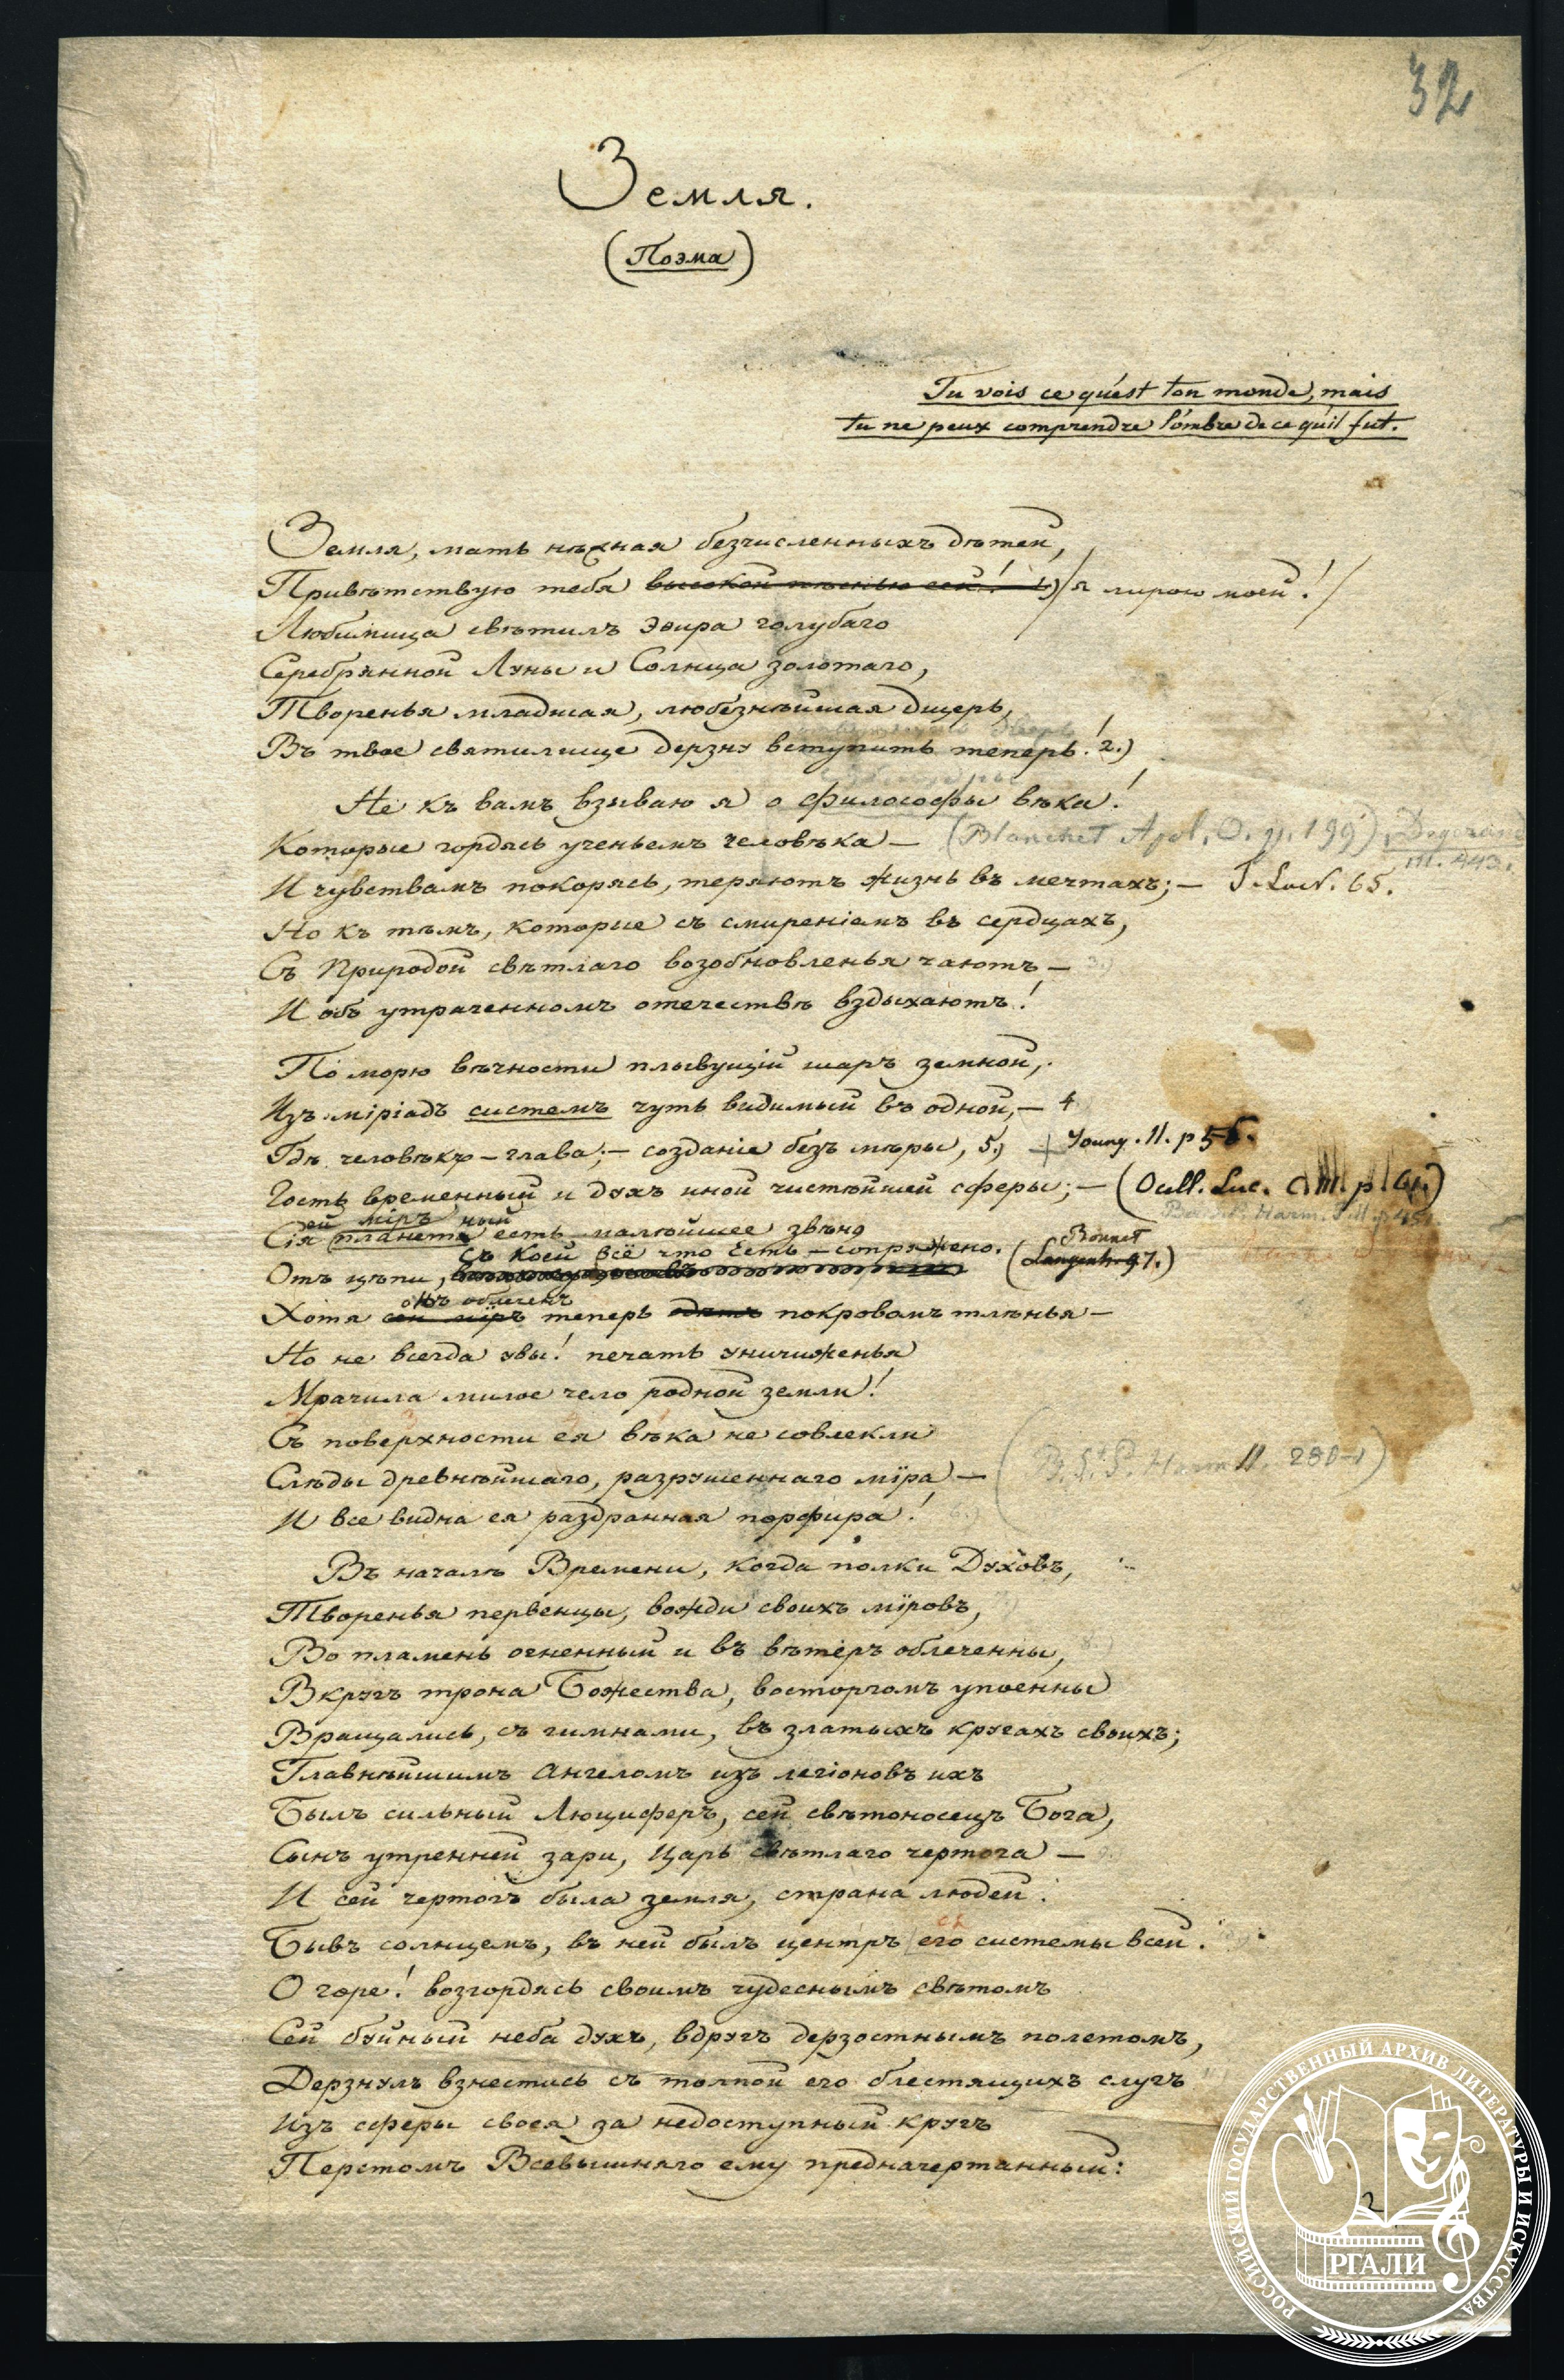 32
Земля.
(Поэма)
Tu vois ce qu'est ton monde, mais
tu ne peux comprendre l'ombre de ce qu'il fut.
Земля, мать нѣжная безчисленныхъ дѣтей,
Привѣтствую тебя высокой пѣснью сей! 1) я лирою моей!
Любимица свѣтилъ эѳира голубаго
Серебрянной Луны и Солнца золотаго,
Творенья младшая, любезнѣйшая дщерь,
Въ твое святилище дерзну вступить теперь! 2.)
Не къ вамъ взываю я о философы вѣка!
Которые гордясь ученьемъ человѣка — (Blanchet Apol. O. p. 199) Degerando
III. 443.
И чувствамъ покорясь, теряютъ жизнь въ мечтахъ; — 65.
Но къ тѣмъ, которые съ смиреніемъ въ сердцахъ,
Съ Природой свѣтлаго возобновленья чаютъ — 3.)
И объ утраченномъ отечествѣ вздыхаютъ!
По морю вѣчности плывущій шаръ земной,
Изъ миріадъ системъ чуть видимый въ одной, — 4
Гдѣ человѣкъ — глава; — созданіе безъ мѣры, 5.) + Young. II. p 56.
Гость временный и духъ иной чистѣйшей сферы; — (Ocell. Luc. C III. p 61.)
ей міръ ный
Сія планета есть малѣйшее звѣно
съ коей всё что есть — сопряжено. Bonnet
Отъ цѣпи, (Langenh. 97.)
онъ облеченъ
Хотя сей міръ теперь одѣтъ покровомъ тлѣнья —
Но не всегда увы! печать уничиженья
Мрачила милое чело родной земли!
Съ поверхности ея вѣка не совлекли
Слѣды древнѣйшаго, разрушеннаго міра — (B. St. P. Harm II. 280-1)
И все видна ея раздранная порфира! 6.)
Въ началѣ Времени, когда полки Духовъ,
Творенья первенцы, вожди своихъ міровъ,
Во пламень огненный и въ вѣтеръ облеченны, 8.)
Вкругъ трона Божества, восторгомъ упоенны
Вращались, съ гимнами, въ златыхъ кругахъ своихъ;
Главнѣйшимъ Ангеломъ изъ легіоновъ ихъ
Былъ сильный Люциферъ, сей свѣтоносецъ Бога,
Сынъ утренней зари, Царь свѣтлаго чертога — 9.
И сей чертогъ была земля, страна людей.
Бывъ солнцемъ, въ ней былъ центръ его системы всей.
О горе! возгордясь своимъ чудеснымъ свѣтомъ
Сей буйный неба духъ, вдругъ дерзостнымъ полетомъ,
Дерзнулъ взнестись съ толпой его блестящихъ слугъ
Изъ сферы своея за недоступный кругъ
Перстомъ Всевышняго ему предначертанный:
2
РОССИЙСКИЙ ГОСУДАРСТВЕННЫЙ АРХИВ ЛИТЕРАТУРЫ И ИСКУССТВА
РГАЛИ